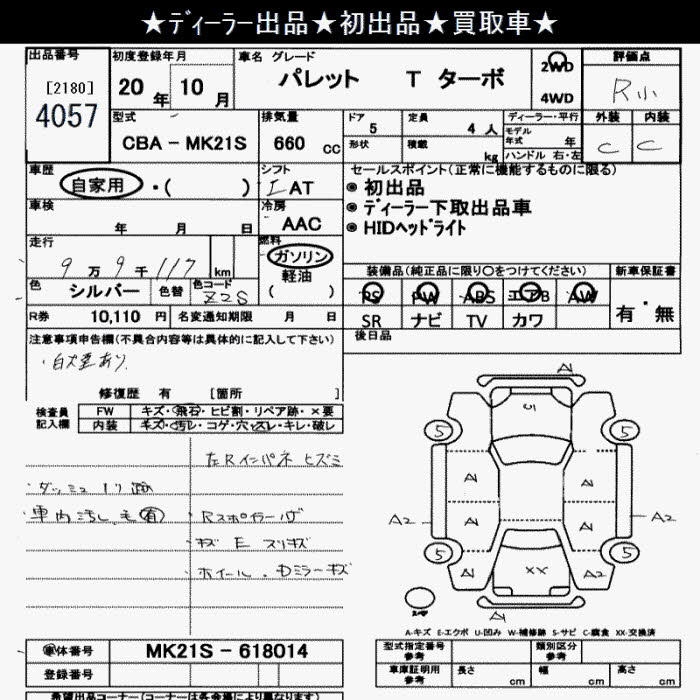 ★ディーラー出品★初出品★買取車★
出品番号
[2180]
4057
初度登録年月
20年 10月
車名 グレード
パレット T ターボ
2WD
4WD
評価点
R小
型式
CBA - MK21S
排気量
660 cc
ドア
5
形状
定員
4人
積載
kg
ディーラー・平行
モデル
年式 年
ハンドル 右・左
外装 内装
C C
車歴
自家用・( )
シフト
I AT
車検
年 月 日
冷房
AAC
セールスポイント(正常に機能するものに限る)
◉ 初出品
◉ ディーラー下取出品車
◉ HIDヘッドライト
走行
9万9千117 km
燃料
ガソリン
軽油
( )
色
シルバー
色替
色コード
Z2S
装備品(純正品に限り○をつけてください)
PS PW ABS エアB AW
SR ナビ TV カワ
新車保証書
有・無
R券 10,110 円
名変通知期限 月 日
後日品
注意事項申告欄(不具合内容等は具体的に記入して下さい)
修復歴 有 [箇所 ]
検査員
記入欄
FW
キズ・飛石・ヒビ割・リペア跡・×要
内装
キズ・汚レ・コゲ・穴・スレ・キレ・破レ
左Rインパネ ヒズミ
・ダッシュ
・車内汚レ
・キズ E スリキズ
・ホイール・Dミラーキズ
A
U
5
5
A
A
A
A
A2
A2
5
5
A
XX
A2
A
A-キズ E-エクボ U-凹み W-補修跡 S-サビ C-腐食 XX-交換済
車体番号
MK21S - 618014
登録番号
型式指定番号
参考
類別区分
参考
車庫証明用
参考
長さ cm
幅 cm
高さ cm
希望出品コーナー(コーナーは各会場により異なります)